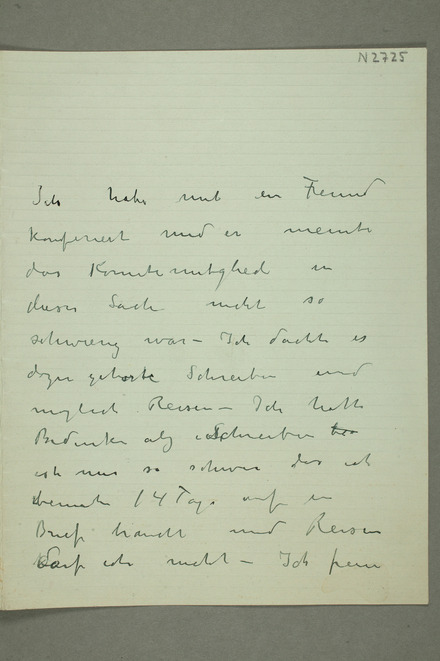 N2725
Ich habe mit en Freund
konferiert und er meinte
das Komiteemitglied in
dieser Sache nicht so
schwierig war – Ich dachte es
dazu gehorte Schreiben und
möglich Reisen – Ich hatte
Bedenken Schreiben
ist mir so schwer das ich
beinahe 14 Tage auf en
Brief brauche und Reisen
darf ich nicht – Ich freue